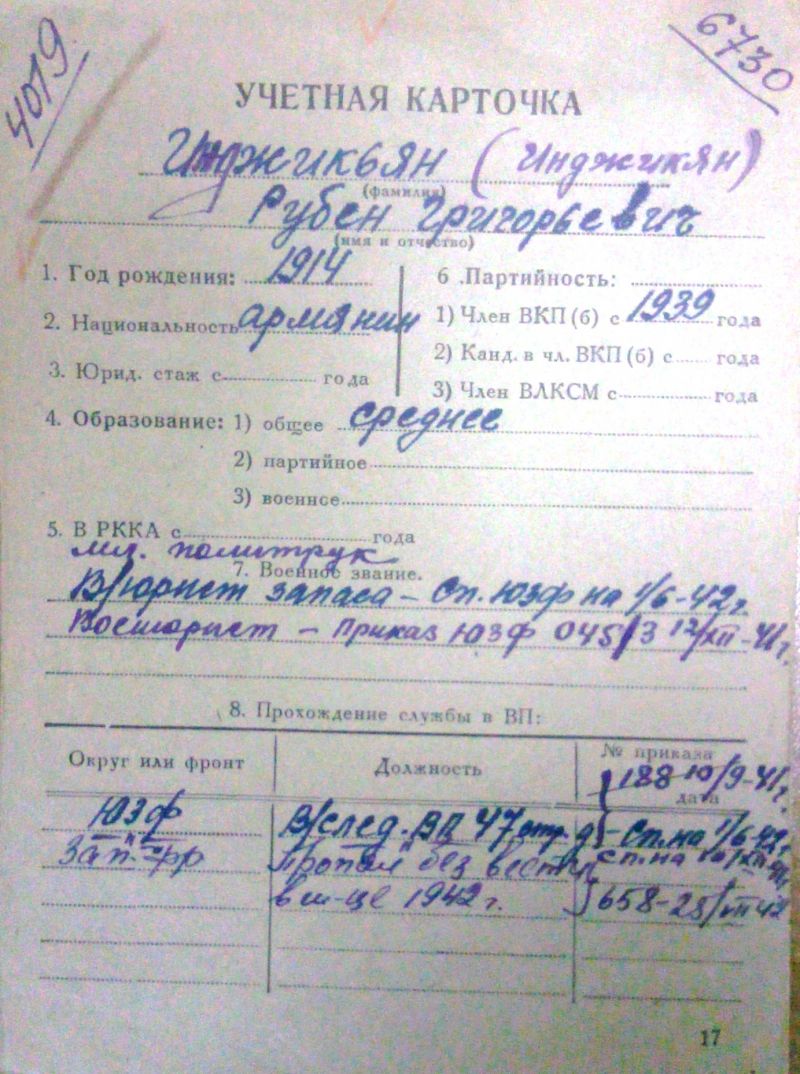 4019
6730
УЧЕТНАЯ КАРТОЧКА
Инджикьян (Инджикян)
(фамилия)
Рубен Григорьевич
(имя и отчество)
1. Год рождения: 1914
2. Национальность армянин
3. Юрид. стаж с года
6. Партийность:
1) Член ВКП(б) с 1939 года
2) Канд. в чл. ВКП(б) с года
3) Член ВЛКСМ с года
4. Образование: 1) общее среднее
2) партийное
3) военное
5. В РККА с года
мл. политрук
7. Военное звание.
В/юрист запаса – Сп. ЮЗФ на 1/6-42 г.
Военюрист – Приказ ЮЗФ 045/3 12/XII-41 г.
8. Прохождение службы в ВП:
Округ или фронт
Должность
№ приказа
188 10/9-41 г.
дата
ЮЗФ
В/след. ВП 47 отр. – Сп. на 1/6-42 г.
Зап. фр
Пропал без вести сп. на
в м-це 1942 г. 658-25/VII 42
17